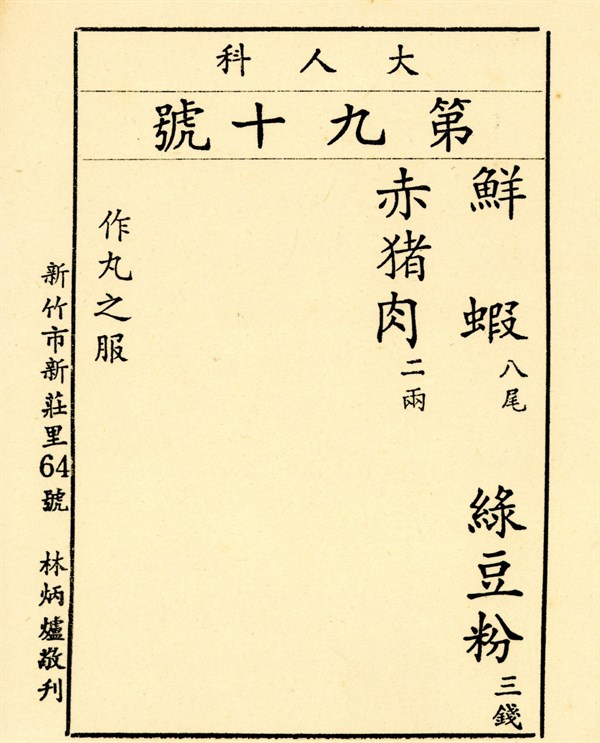 大人科
第九十號
鮮蝦八尾 綠豆粉三錢
赤猪肉二兩
作丸之服
新竹市新莊里64號 林炳爐敬刊